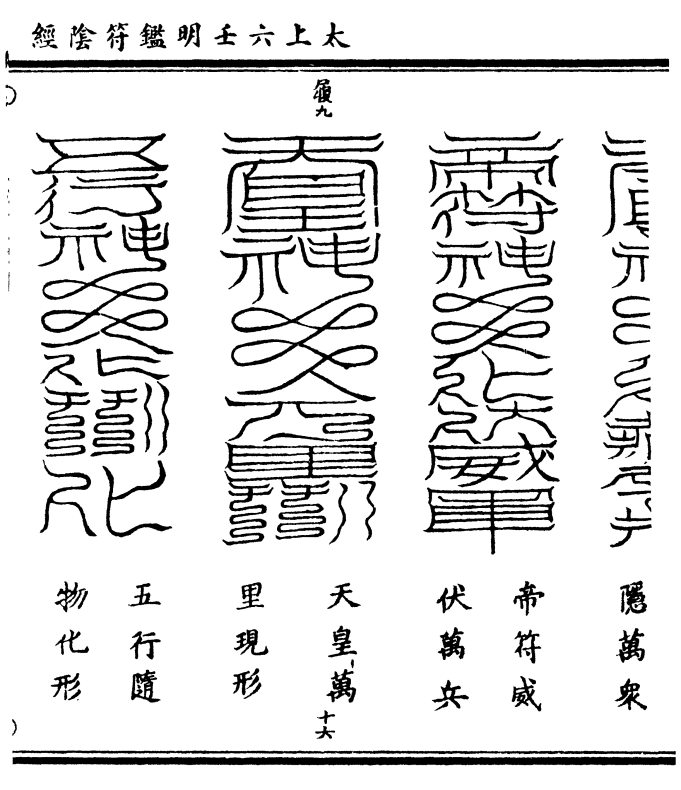 太上六壬明鑑符陰經
履九
隱萬衆
帝符威
伏萬兵
天皇萬
里現形
五行隨
物化形
十六